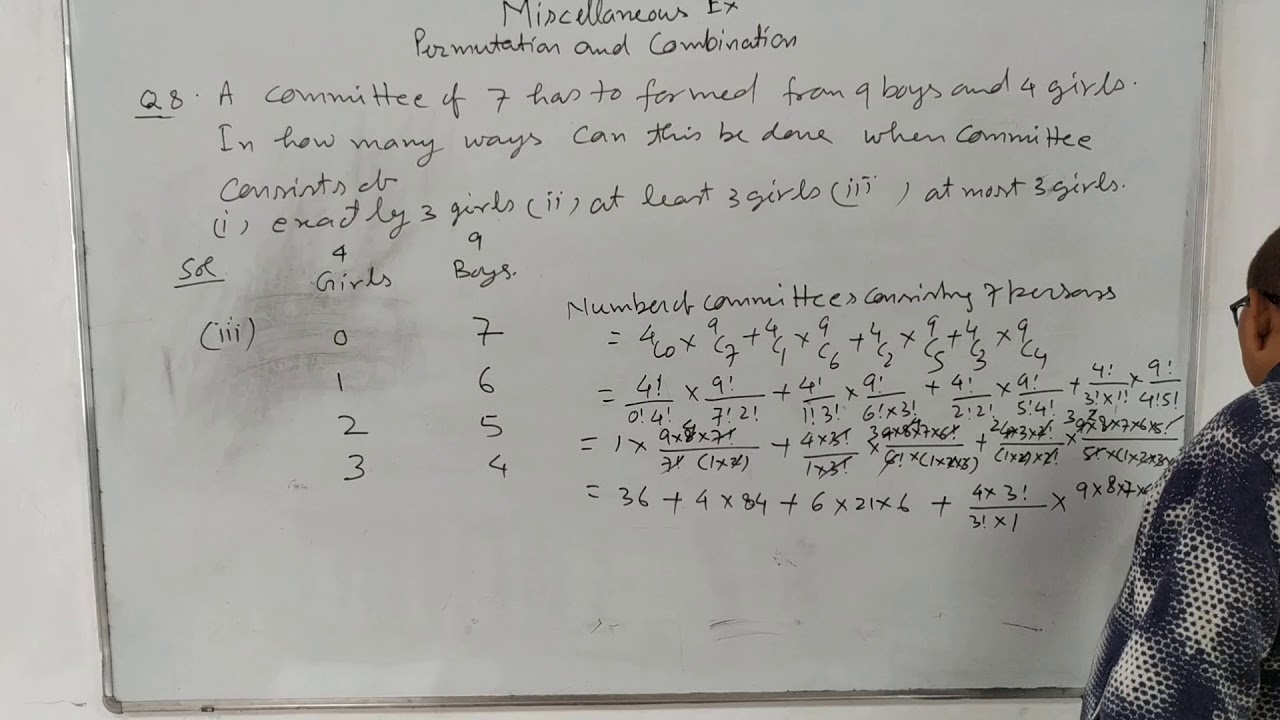 Miscellaneous Ex
Permutation and Combination
Q8. A committee of 7 has to formed from 9 boys and 4 girls.
In how many ways can this be done when committee
consists of
(i) exactly 3 girls (ii) at least 3 girls (iii) at most 3 girls.
Sol 4 Girls 9 Boys.
(iii) 0 7
1 6
2 5
3 4
Number of committees consisting 7 persons
= 4C0 × 9C7 + 4C1 × 9C6 + 4C2 × 9C5 + 4C3 × 9C4
= 4!/0!4! × 9!/7!2! + 4!/1!3! × 9!/6!×3! + 4!/2!2! × 9!/5!4! + 4!/3!×1! × 9!/4!5!
= 1 × 9×8×7!/7!(1×2) + 4×3!/1×3! × 9×8×7×6!/6!×(1×2×3) + 4×3×2!/(1×2)×2! × 9×8×7×6×5!/5!×(1×2×3×
= 36 + 4×84 + 6×21×6 + 4×3!/3!×1 × 9×8×7×